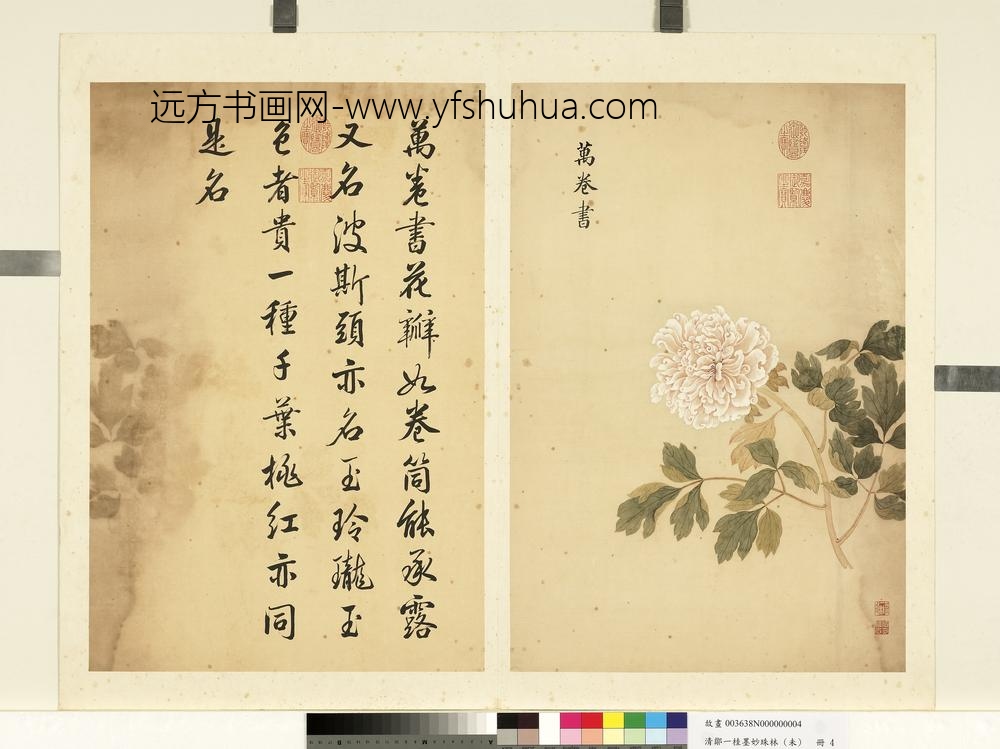 远方书画网-www.yfshuhua.com
萬卷書
萬卷書花瓣如卷筒能承露
又名波斯頭亦名玉玲瓏玉
色者貴一種千葉桃紅亦同
是名
故畫 003638N000000004
清鄒一桂墨妙珠林（未） 冊 4